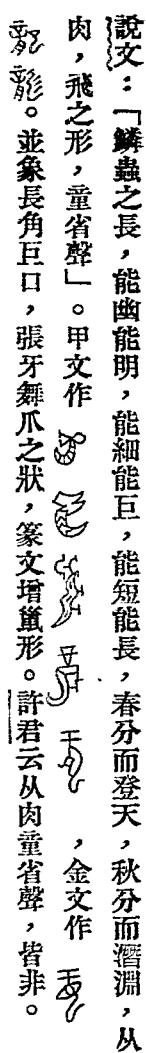 說文：「鱗蟲之長，能幽能明，能細能巨，能短能長，春分而登天，秋分而潛淵，从
肉，飛之形，童省聲」。甲文作，金文作
。並象長角巨口，張牙舞爪之狀，篆文增形。許君云从肉童省聲，皆非。